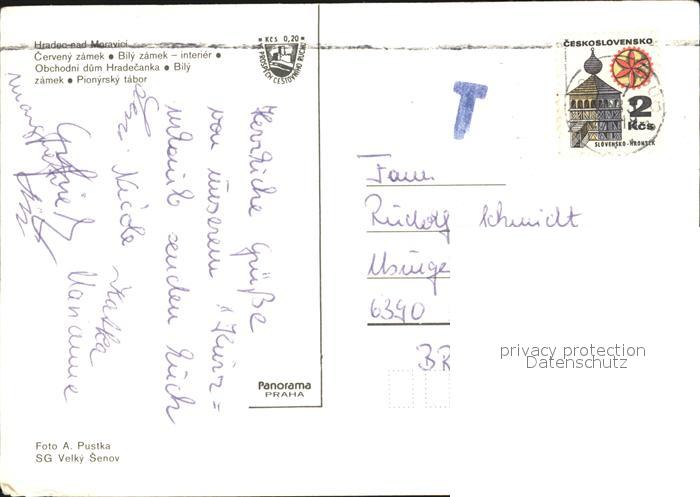 Hradec nad Moravicí
Červený zámek ● Bílý zámek – interiér ●
Obchodní dům Hradečanka ● Bílý
zámek ● Pionýrský tábor
KČS 0,20
VE PROSPĚCH CESTOVNÍHO RUCHU
ČESKOSLOVENSKO
2
Kčs
SLOVENSKO-HRONSEK
T
Herzliche Grüße
von unserem "Kurz=
urlaub senden Euch
Marianne
Fam.
Rudolf Schmidt
Usinge
6390
BR
privacy protection
Datenschutz
Panorama
PRAHA
Foto A. Pustka
SG Velký Šenov